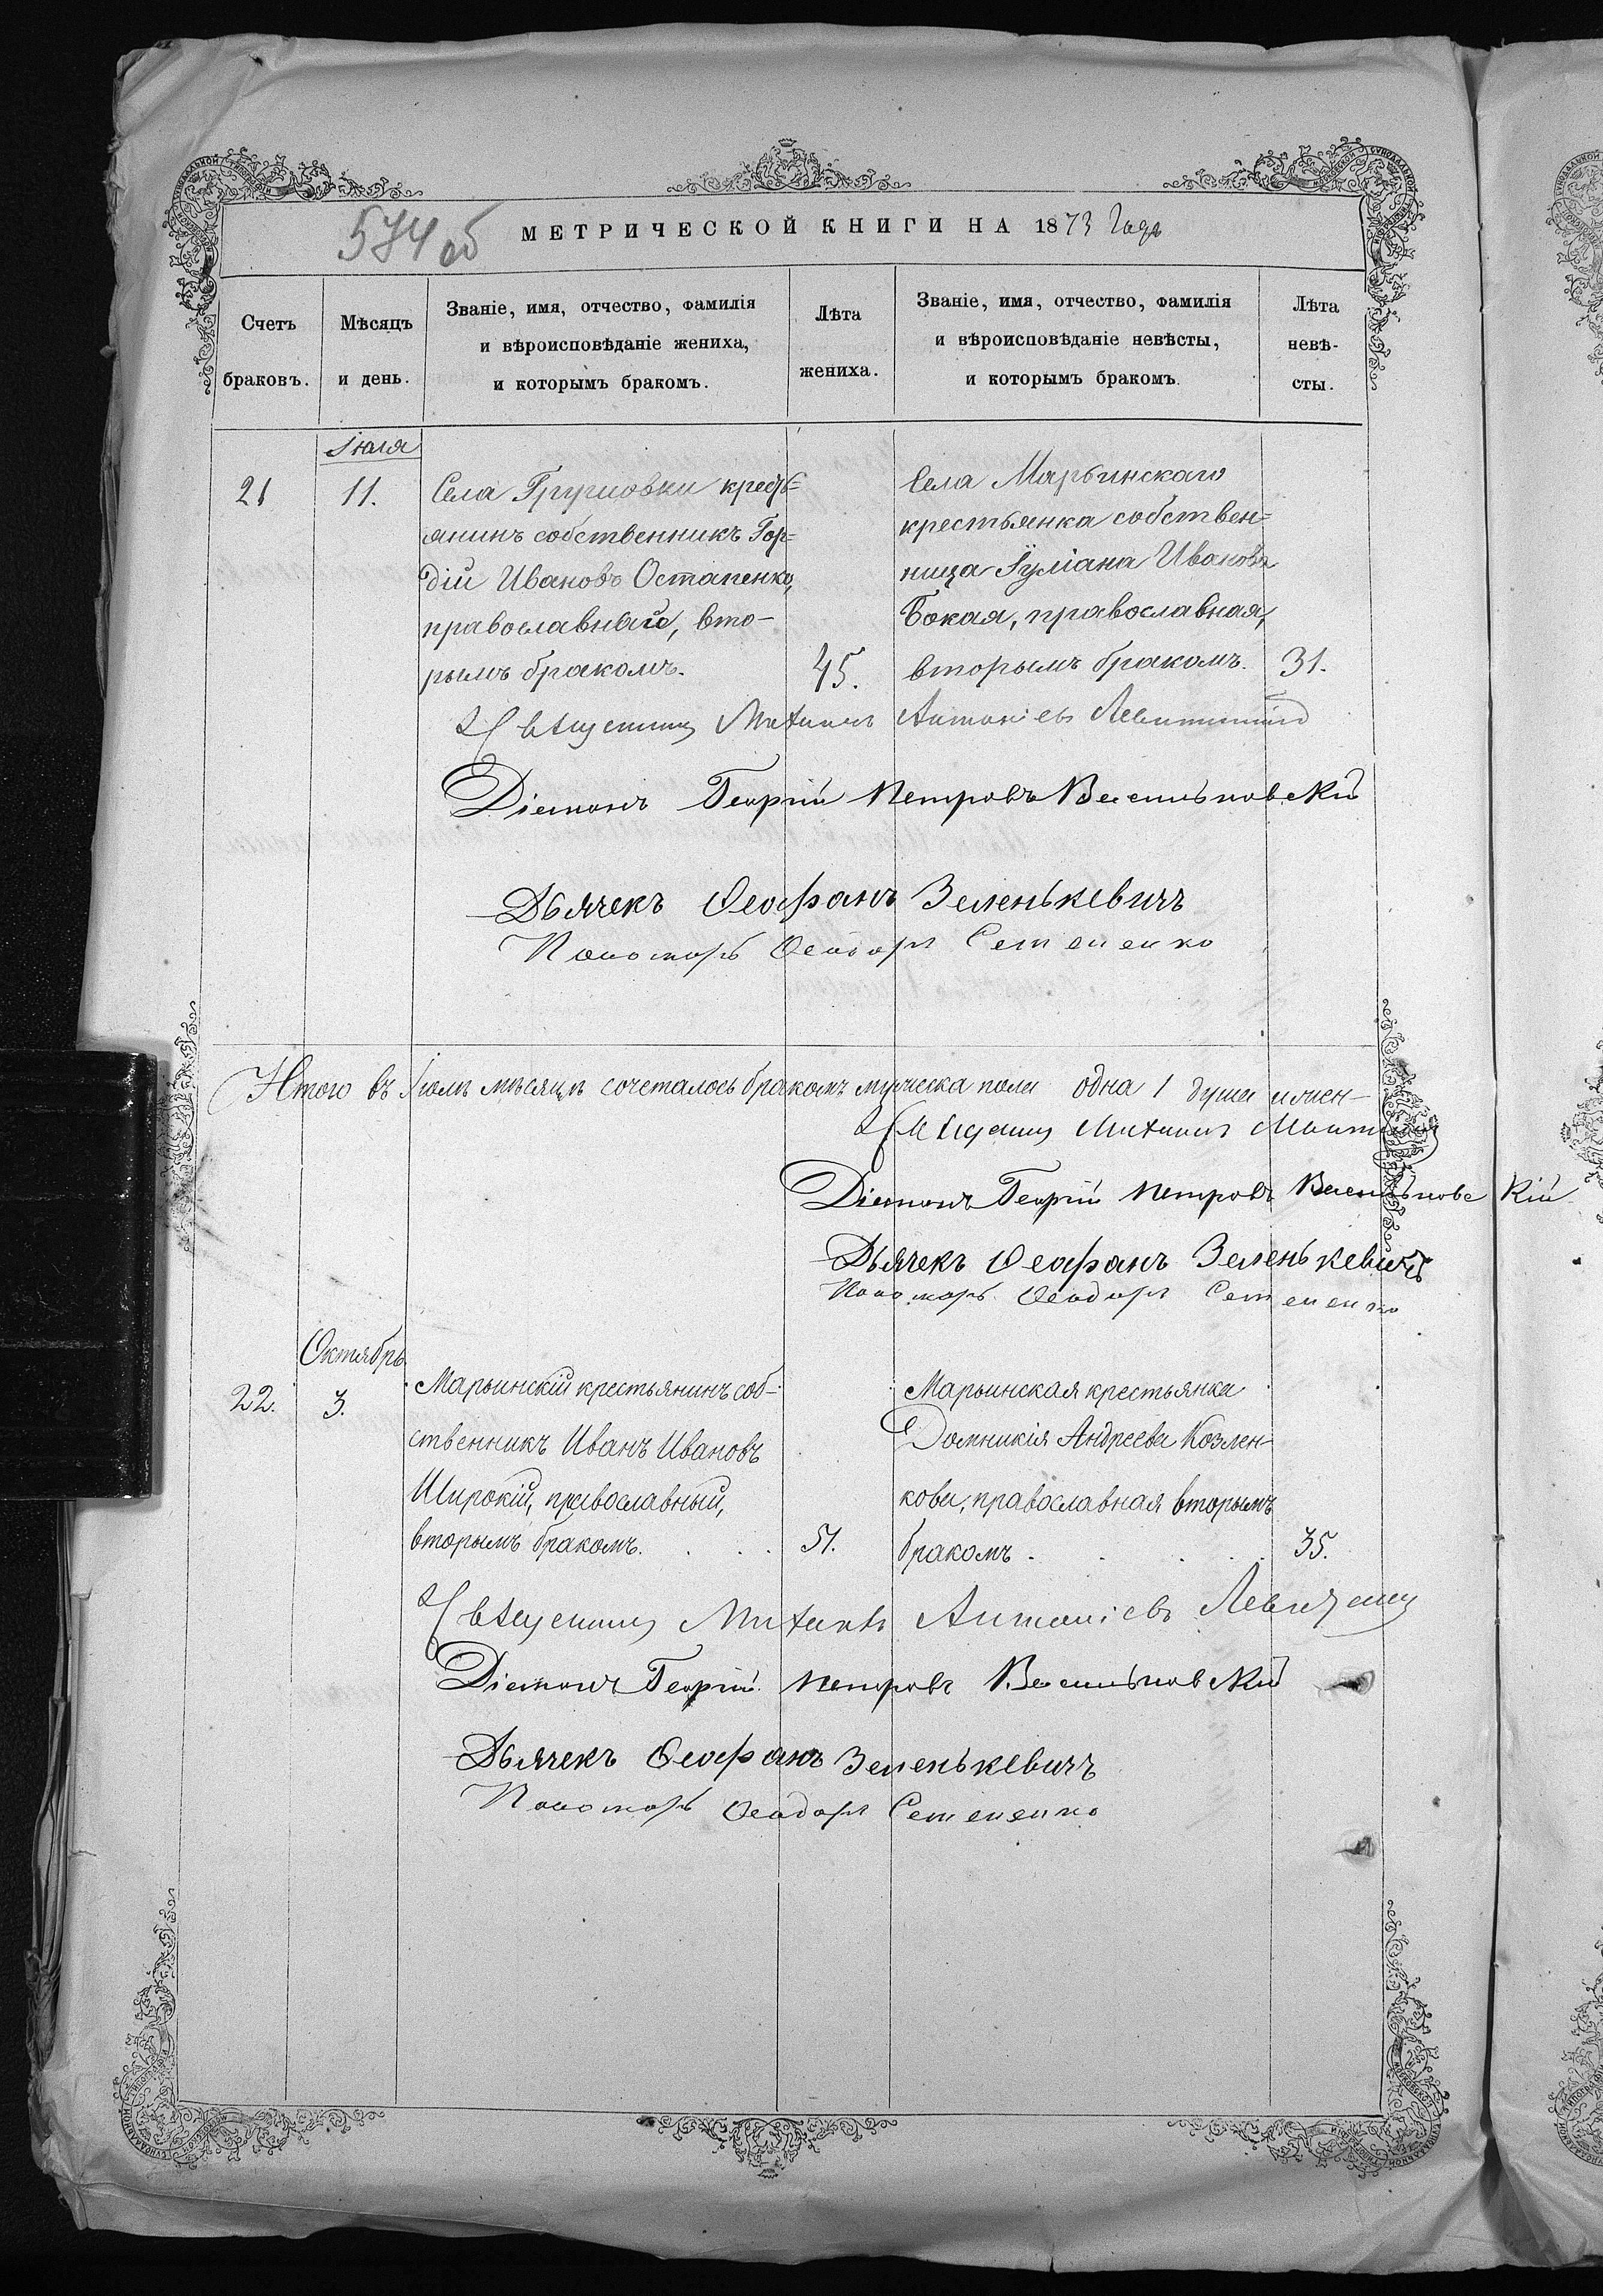 574 об
МЕТРИЧЕСКОЙ КНИГИ НА 1873 Года
Счетъ браковъ.
Мѣсяцъ и день.
Званіе, имя, отчество, фамилія
и вѣроисповѣданіе жениха,
и которымъ бракомъ.
Лѣта жениха.
Званіе, имя, отчество, фамилія
и вѣроисповѣданіе невѣсты,
и которымъ бракомъ.
Лѣта невѣ-
сты.
Іюля
21
11.
Села кресть=
янинъ собственникъ Гор=
дій Ивановъ Остапенко,
православный, вто-
рымъ бракомъ.
45.
Села Марьинскаго
крестьянка собствен=
ница Іуліана Иванова
Бокая, православная,
вторымъ бракомъ.
31.
Священникъ Михаилъ Антоніевъ
Діаконъ Георгій Петровъ Васильковскій
Дьячекъ Ѳеофанъ Зеленькевичъ
Пономарь Ѳеодоръ
Итого въ Іюлѣ мѣсяцѣ сочеталось бракомъ мужеска пола одна 1 душа и жен-
Священникъ Михаилъ
Діаконъ Георгій Петровъ Васильковскій
Дьячекъ Ѳеофанъ Зеленькевичъ
Пономарь Ѳеодоръ
Октябрь
22.
3.
Марьинскій крестьянинъ соб-
ственникъ Иванъ Ивановъ
Широкій, православный,
вторымъ бракомъ. . . .
51.
Марьинская крестьянка
Домникія Андреева Козлен-
кова, православная вторымъ
бракомъ . . . .
35.
Священникъ Михаилъ Антоніевъ
Діаконъ Георгій Петровъ Васильковскій
Дьячекъ Ѳеофанъ Зеленькевичъ
Пономарь Ѳеодоръ